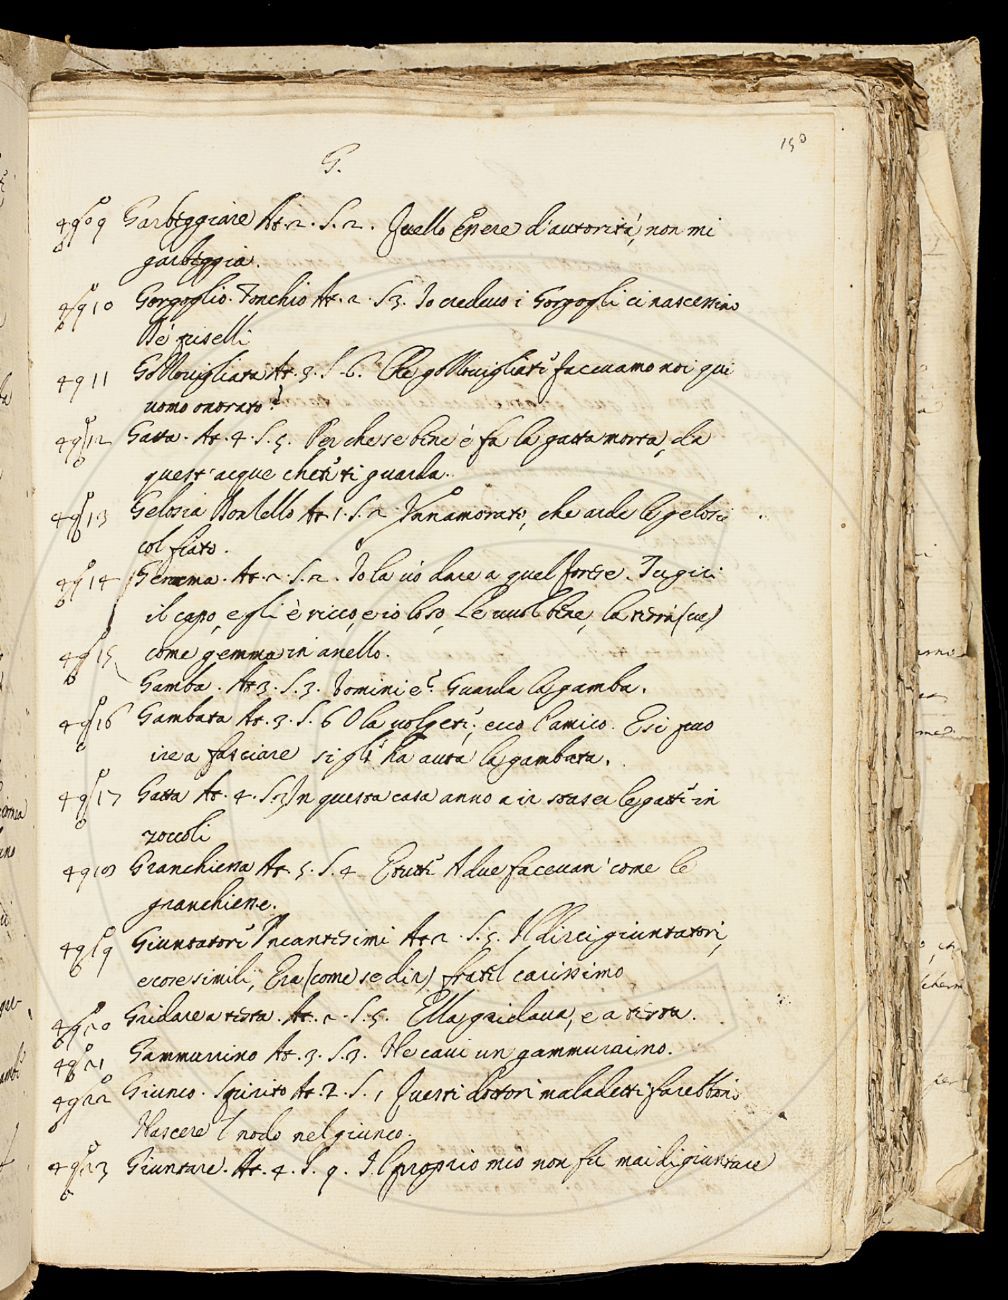 150
G.
4909 Garbeggiare At. 2. S. 2. Quello essere d'autorità, non mi
garbeggia.
4910 Gorgoglio. Tonchio At. 2. S. 3. Io credevo i Gorgogli ci nascessino
Di piselli
4911 At. 3. S. 6. Che facevamo noi qui
uomo onorato?
4912 Gatta. At. 4. S. 5. Per che se bene e' fa la gatta morta, da
quest'acque cheti ti guarda.
4913 Gelosia At. 1. S. 2 Innamorato, che arde le gelosie
col fiato.
4914 Gemma. At. 2. S. 2. Io la vo dare a quel forese. Tu gici
il capo, egli è ricco, e io loso, Le vuol bene, la terrà (sue)
come gemma in anello.
4915 Gamba. At. 3. S. 3. Domini est. Guarda la gamba.
4916 Gambata At. 3. S. 6 O la volgeti, ecco l'amico. E si può
ire a fasciare si gli ha auta la gambata.
4917 Gatta At. 4. S. 2 In questa casa anno a ir stasera le gatti in
zoccoli
4918 Granchiessa At. 5. S. 4 E tutti A due facevan' come le
granchiesse.
4919 Giuntatori Incantesimi At. 2. S. 5. Il dirci giuntatori,
e cose simili, Era (come se dir) fratel carissimo
4920 Gridare a testa. At. 2. S. 5. Ella gridava, e a testa.
4921 Gammurrino At. 3. S. 3. Ne cavi un gammuraino.
4922 Giunco. Spirito At. 2. S. 1 Questi dottori maladetti farebbono
Nascere l nodo nel giunco.
4923 Giuntare. At. 4. S. 9. Il proprio mio non fu mai di giuntare